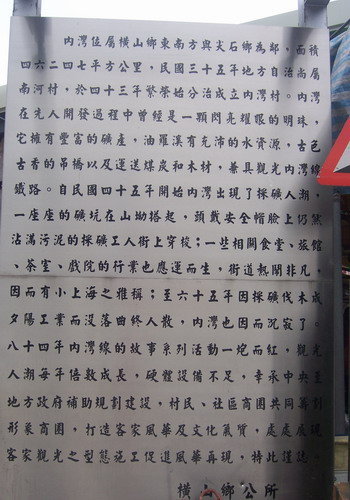 內灣位屬橫山鄉東南方與尖石鄉為鄰，面積
四六二四七平方公里，民國三十五年地方自治尚屬
南河村，於四十三年繁榮始分治成立內灣村。內灣
在先人開發過程中曾經是一顆閃亮耀眼的明珠，
它擁有豐富的礦產，油羅溪有充沛的水資源，古色
古香的吊橋以及運送煤炭和木材，兼具觀光內灣線
鐵路。自民國四十五年開始內灣出現了採礦人潮，
一座座的礦坑在山坳搭起，頭戴安全帽臉上仍然
沾滿污泥的採礦工人街上穿梭；一些相關食堂、旅館
、茶室、戲院的行業也應運而生，街道熱鬧非凡，
因而有小上海之雅稱；至六十五年因採礦伐木成
夕陽工業而沒落曲終人散，內灣也因而沉寂了。
八十四年內灣線的故事系列活動一炮而紅，觀光
人潮每年倍數成長，硬體設備不足，幸承中央至
地方政府補助規劃建設，村民、社區商圈共同籌劃
形象商圈，打造客家風華及文化氣質，處處展現
客家觀光之型態施工促進風華再現，特此謹誌。
橫山鄉公所